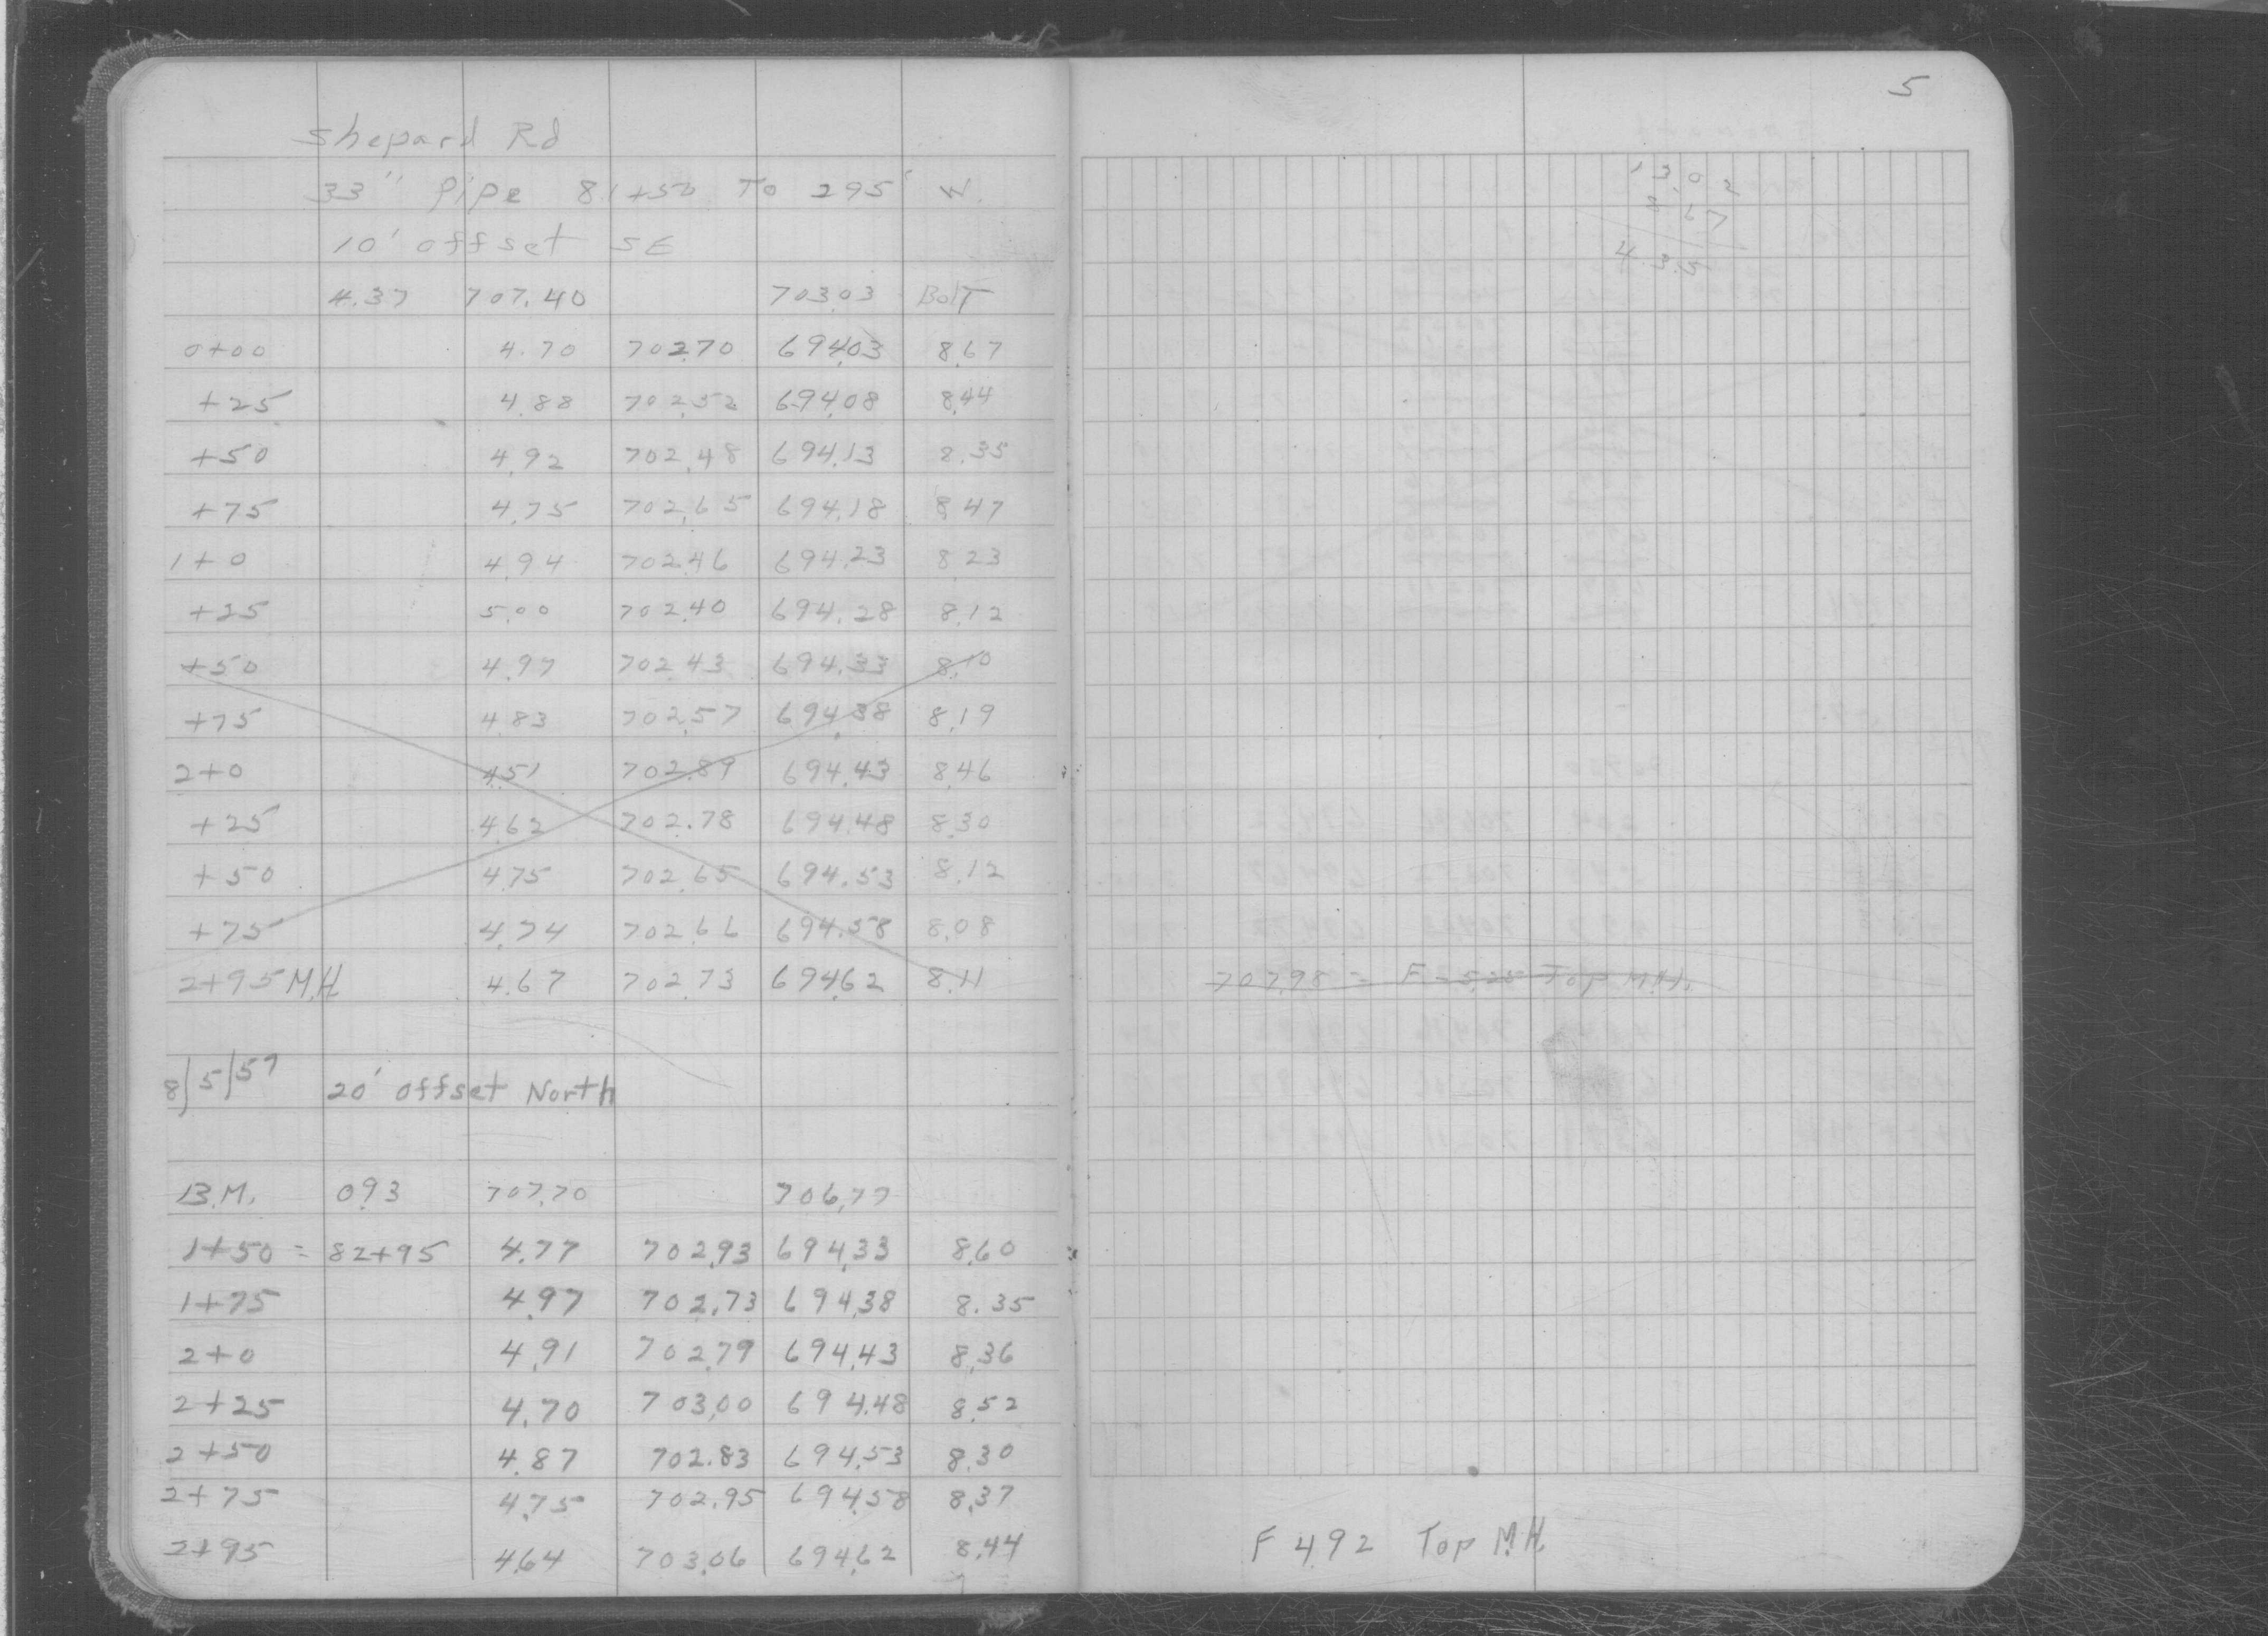 Shepard Rd
33" Pipe 81+50 To 295' W.
10' offset SE
4.37 707.40 703.03 Bolt
0+00 4.70 702.70 694.03 8.67
+25 4.88 702.52 694.08 8.44
+50 4.92 702.48 694.13 8.35
+75 4.75 702.65 694.18 8.47
1+0 4.94 702.46 694.23 8.23
+25 5.00 702.40 694.28 8.12
+50 4.97 702.43 694.33 8.10
+75 4.83 702.57 694.38 8.19
2+0 4.51 702.89 694.43 8.46
+25 4.62 702.78 694.48 8.30
+50 4.75 702.65 694.53 8.12
+75 4.74 702.66 694.58 8.08
2+95 M.H. 4.67 702.73 694.62 8.11
8/5/57 20' offset North
B.M. 0.93 707.70 706.77
1+50 = 82+95 4.77 702.93 694.33 8.60
1+75 4.97 702.73 694.38 8.35
2+0 4.91 702.79 694.43 8.36
2+25 4.70 703.00 694.48 8.52
2+50 4.87 702.83 694.53 8.30
2+75 4.75 702.95 694.58 8.37
2+95 4.64 703.06 694.62 8.44
5
13.02
8.67
4.35
707.98 = F-5.25 Top M.H.
F 4.92 Top M.H.